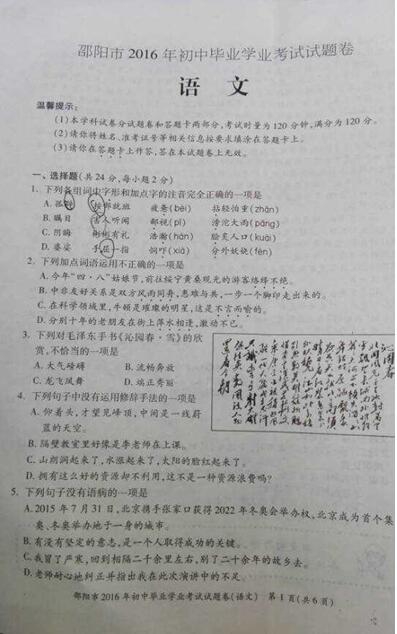 邵阳市2016年初中毕业学业考试试题卷
语 文
温馨提示:
(1)本学科试卷分试题卷和答题卡两部分,考试时量为120分钟,满分为120分。
(2)请你将姓名、准考证号等相关信息按要求填涂在答题卡上。
(3)请你在答题卡上作答,答在本试题卷上无效。
一、选择题(共24分,每小题2分)
1. 下列各组词中字形和加点字的注音完全正确的一项是
A. 按部就班 疲惫(bèi) 拈轻怕重(zhān)
B. 瞩目 骇人听闻 鄙视(pǐ) 滂沱大雨(pāng)
C. 彬彬有礼 浩瀚(hàn) 脍炙人口(kuài)
D. 婆娑 手屈一指 恫吓(xià) 分外妖娆(fèn)
2. 下列加点词语运用不正确的一项是
A. 今年“四·八”姑娘节,前往绥宁黄桑观光的游客络绎不绝。
B. 中非友好关系是双方风雨同舟,患难与共,一步一个脚印走出来的。
C. 在科学领域里,牛顿是璀璨的明星,这是不言而喻的。
D. 分别十年的老朋友在街上萍水相逢,激动不已。
3. 下列对毛泽东手书《沁园春·雪》的欣
赏,不恰当的一项是
A. 大气磅礴 B. 流畅奔放
C. 龙飞凤舞 D. 端正秀丽
沁园春
4. 下列句子中没有运用修辞手法的一项是
A. 仰着头,才望见峰顶,中间是一线蔚
蓝的天空。
B. 隔壁教室里好像是李老师在上课。
C. 山朗润起来了,水涨起来了,太阳的脸红起来了。
D. 拥有这么好的资源却不利用,这不是一种资源浪费吗?
5. 下列句子没有语病的一项是
A. 2015年7月31日,北京携手张家口获得2022年冬奥会举办权,北京成为首个集
奥、冬奥举办地于一身的城市。
B. 有没有坚定的意志,是一个人取得成功的关键。
C. 我冒了严寒,回到相隔二千余里左右,别了二十余年的故乡去。
D. 老师耐心地纠正并指出我在此次演讲中的不足。
邵阳市2016年初中毕业学业考试试题卷(语文) 第1页(共6页)